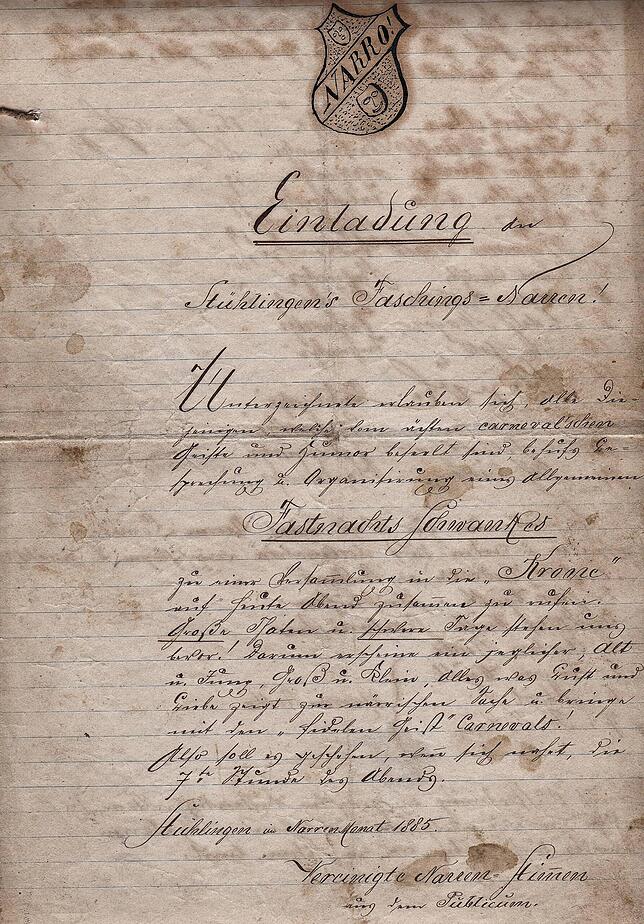 NARRO!
Einladung der
Stühlingen's Faschings=Narren!
Unterzeichnete erlauben sich, alle Die-
jenigen, welche vom ächten carneval'schen
Geiste und Humor beseelt sind, behufs Be=
sprechung u. Organisirung eines Allgemeinen
Fastnachts Schwankes
zu einer Versammlung in die „Krone"
auf heute Abend zusammen zu rufen.
Große Thaten u. schwere Tage stehen uns
bevor! Darum erscheine ein jeglicher, Alt
u. Jung, Groß u. Klein, Alles was Lust und
Liebe zeigt zur närrischen Sache u. bringe
mit den „fidelen Geist" Carnevals!
Also soll es geschehen, wenn sich nahet, die
7te Stunde des Abends.
Stühlingen im NarrenMonat 1885.
Vereinigte Narren-Stim̅en
aus dem Publicum.